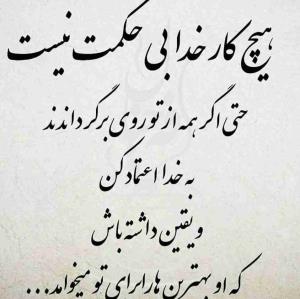 هیچ کار خدا بی حکمت نیست
حتی اگر همه از تو روی برگرداندند
به خدا اعتماد کن
و یقین داشته باش
که او بهترین هارا برای تو میخواهد...